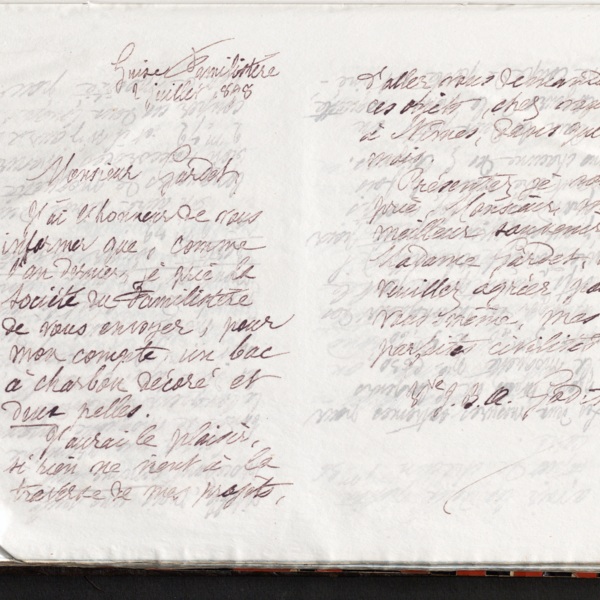 Guise Familistère
2 juillet 1898
Monsieur Sardet,
J'ai l'honneur de vous
informer que, comme
l'an dernier, je prie la
Société du Familistère
de vous envoyer, pour
mon compte un bac
à charbon décoré et
deux pelles.
J'aurai le plaisir,
si rien ne vient à la
traverse de mes projets,
d'aller vous demander
ces objets, chez vous
à Nîmes, dans que
mois.
Présentez, je
prie, Monsieur,
meilleurs souvenirs
Madame Sardet,
veuillez agréer
vous-même, mes
parfaites civilités
Vve J. B. A. God